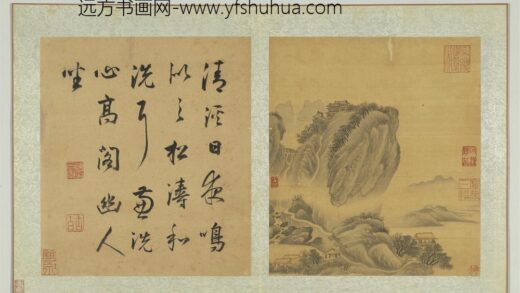 远方书画网-www.yfshuhua.com
清日夜鳴
松濤和
洗耳兼洗
心高閣幽人
坐